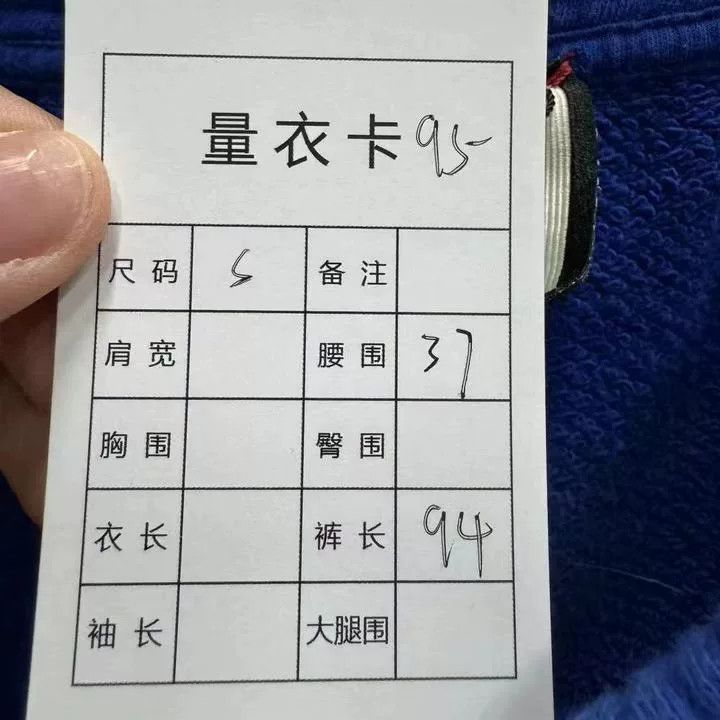 量衣卡 95
尺码 S 备注
肩宽 腰围 37
胸围 臀围
衣长 裤长 94
袖长 大腿围